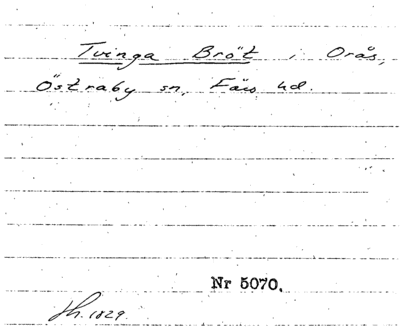 Tvinga Bröt, Orås,
Östraby sn, Färs hd.
Nr 5070.
1829.